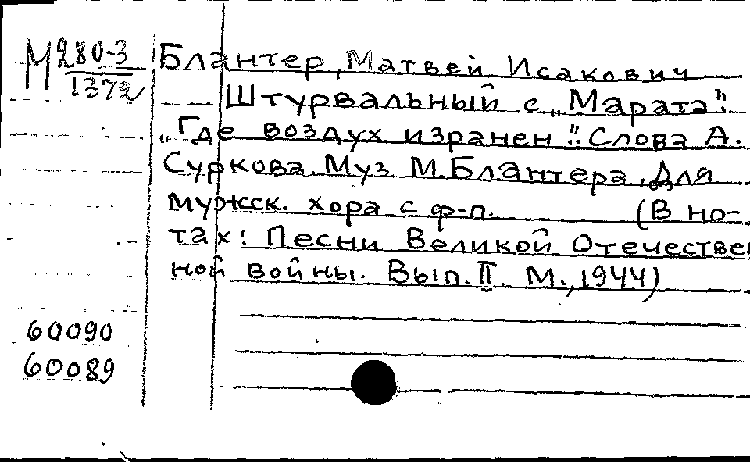 М280-3
1372
Блантер, Матвей Исакович
Штурвальный с „Марата".
„Где воздух изранен". Слова А.
Суркова. Муз М. Блантера. Для
мужск. хора с ф-п. (В но-
тах: Песни Великой Отечествен
ной войны. Вып. II М., 1944)
60090
60089